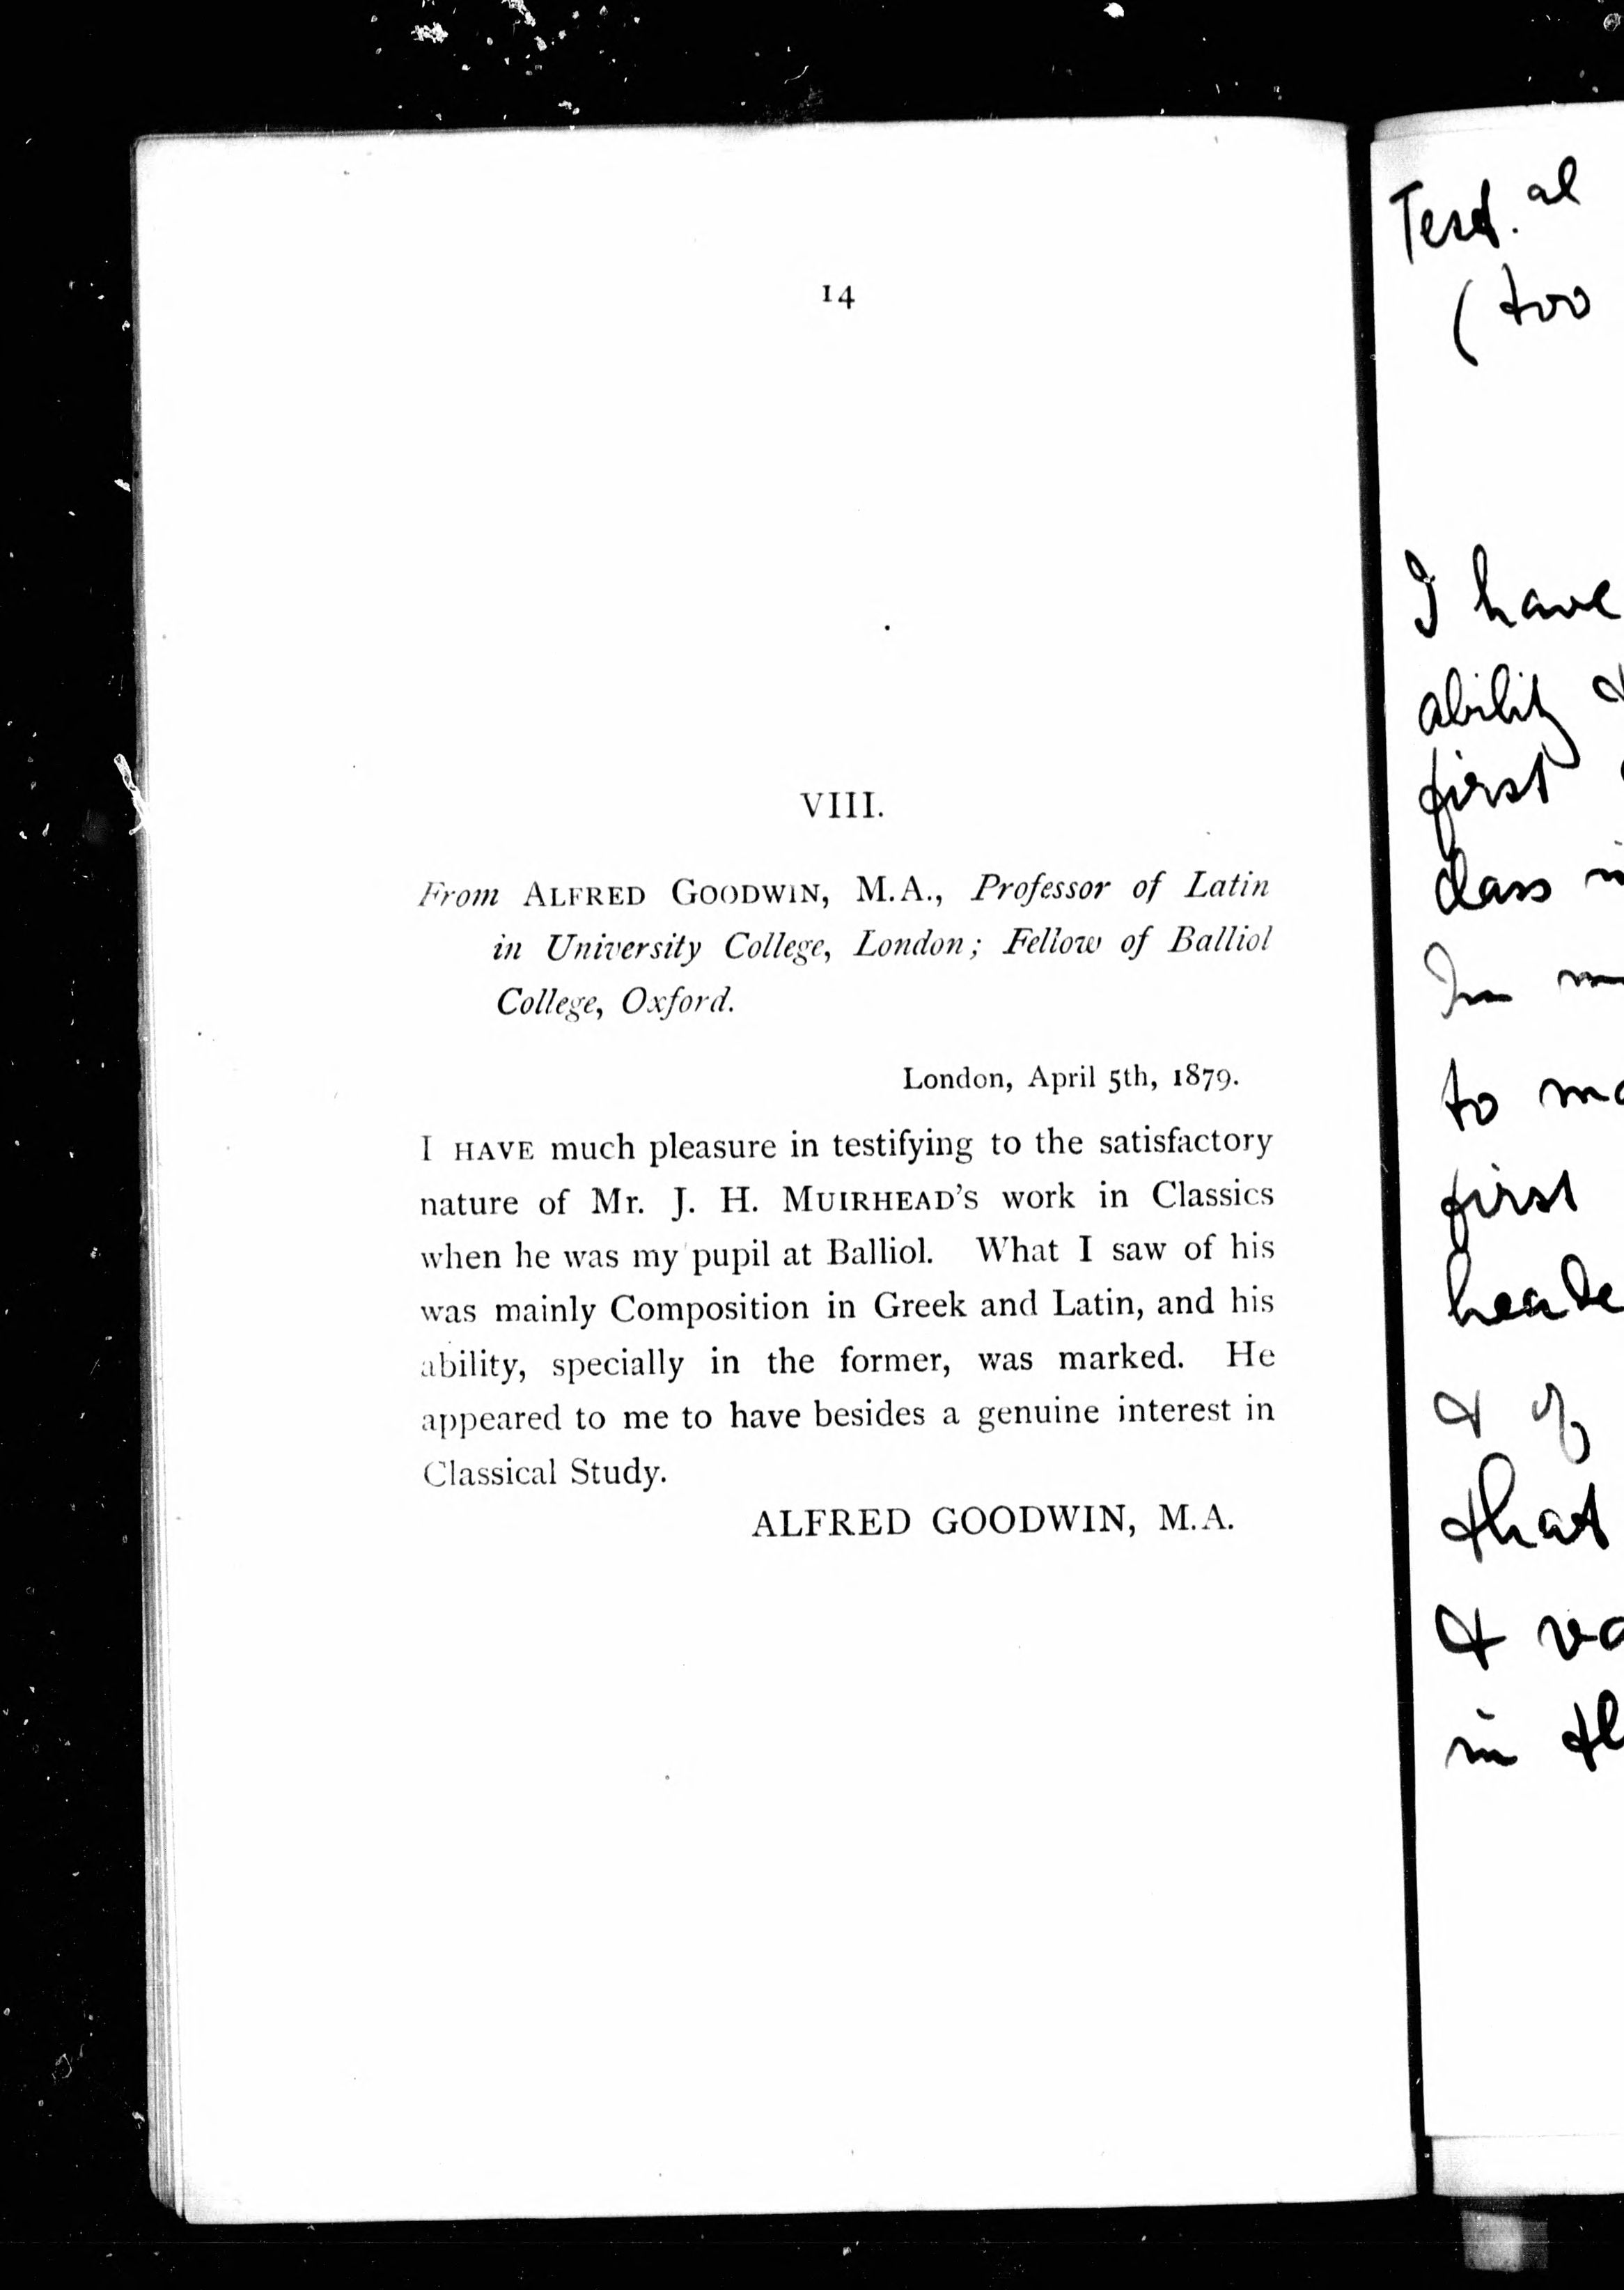 14
VIII.
From ALFRED GOODWIN, M.A., Professor of Latin
in University College, London; Fellow of Balliol
College, Oxford.
London, April 5th, 1879.
I HAVE much pleasure in testifying to the satisfactory
nature of Mr. J. H. MUIRHEAD'S work in Classics
when he was my pupil at Balliol. What I saw of his
was mainly Composition in Greek and Latin, and his
ability, specially in the former, was marked. He
appeared to me to have besides a genuine interest in
Classical Study.
ALFRED GOODWIN, M.A.
Test.al
(too
I have
ability &
first
class
In
to
first
& of
that
&
in